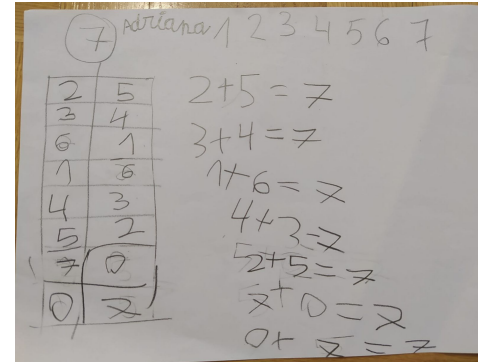 7 Adriana 1 2 3 4 5 6 7
2 5
3 4
6 1
1 6
4 3
5 2
7 0
0 7
2+5=7
3+4=7
1+6=7
4+3=7
2+5=7
7+0=7
0+7=7